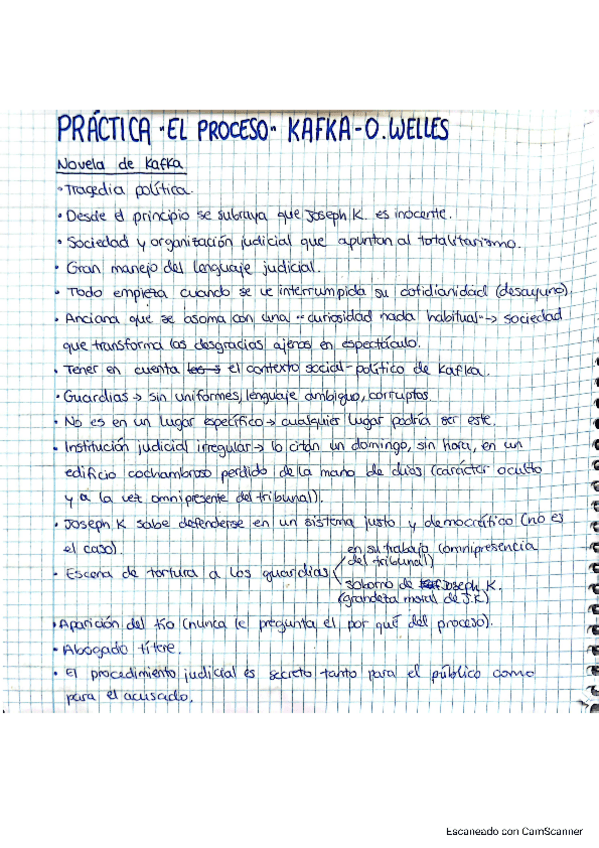 PRÁCTICA "EL PROCESO" KAFKA-O.WELLES
Novela de Kafka
· Tragedia política.
· Desde el principio se subraya que Joseph K. es inocente.
· Sociedad y organización judicial que apuntan al totalitarismo.
· Gran manejo del lenguaje judicial.
· Todo empieza cuando se ve interrumpida su cotidianidad (desayuno).
· Anciana que se asoma con una "curiosidad nada habitual" → sociedad
que transforma las desgracias ajenas en espectáculo.
· Tener en cuenta el contexto social-político de Kafka.
· Guardias → sin uniformes, lenguaje ambiguo, corruptos.
· No es en un lugar específico → cualquier lugar podría ser este.
· Institución judicial irregular → lo citan un domingo, sin hora, en un
edificio cochambroso perdido de la mano de dios (carácter oculto
y a la vez omnipresente del tribunal).
· Joseph K sabe defenderse en un sistema justo y democrático (no es
el caso).
en su trabajo (omnipresencia
del tribunal)
· Escena de tortura a los guardias
soborno de Joseph K.
(grandeza moral de J.K)
· Aparición del tío (nunca le pregunta el por qué del proceso).
· Abogado títere.
· El procedimiento judicial es secreto tanto para el público como
para el acusado.
Escaneado con CamScanner